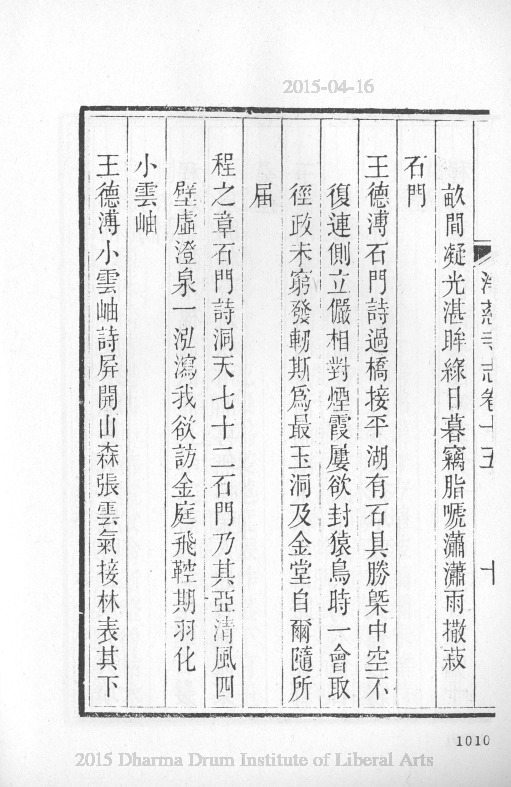 2015-04-16
淨慈寺志卷十五 十
畝間凝光湛眸綠日暮竊脂唬瀟瀟雨撒菽
石門
王德溥石門詩過橋接平湖有石具勝槩中空不
復連側立儼相對煙霞屢欲封猿鳥時一會取
徑政未窮發軔斯爲最玉洞及金堂自爾隨所
届
程之章石門詩洞天七十二石門乃其亞清風四
壁虛澄泉一泓瀉我欲訪金庭飛鞚期羽化
小雲岫
王德溥小雲岫詩屏開山森張雲氣接林表其下
1010
2015 Dharma Drum Institute of Liberal Arts